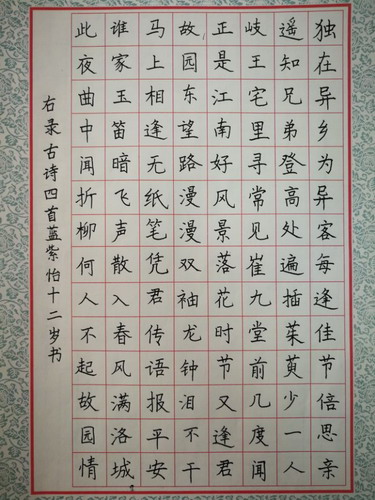 独在异乡为异客每逢佳节倍思亲
遥知兄弟登高处遍插茱萸少一人
岐王宅里寻常见崔九堂前几度闻
正是江南好风景落花时节又逢君
故园东望路漫漫双袖龙钟泪不干
马上相逢无纸笔凭君传语报平安
谁家玉笛暗飞声散入春风满洛城
此夜曲中闻折柳何人不起故园情
右录古诗四首蓝紫怡十二岁书